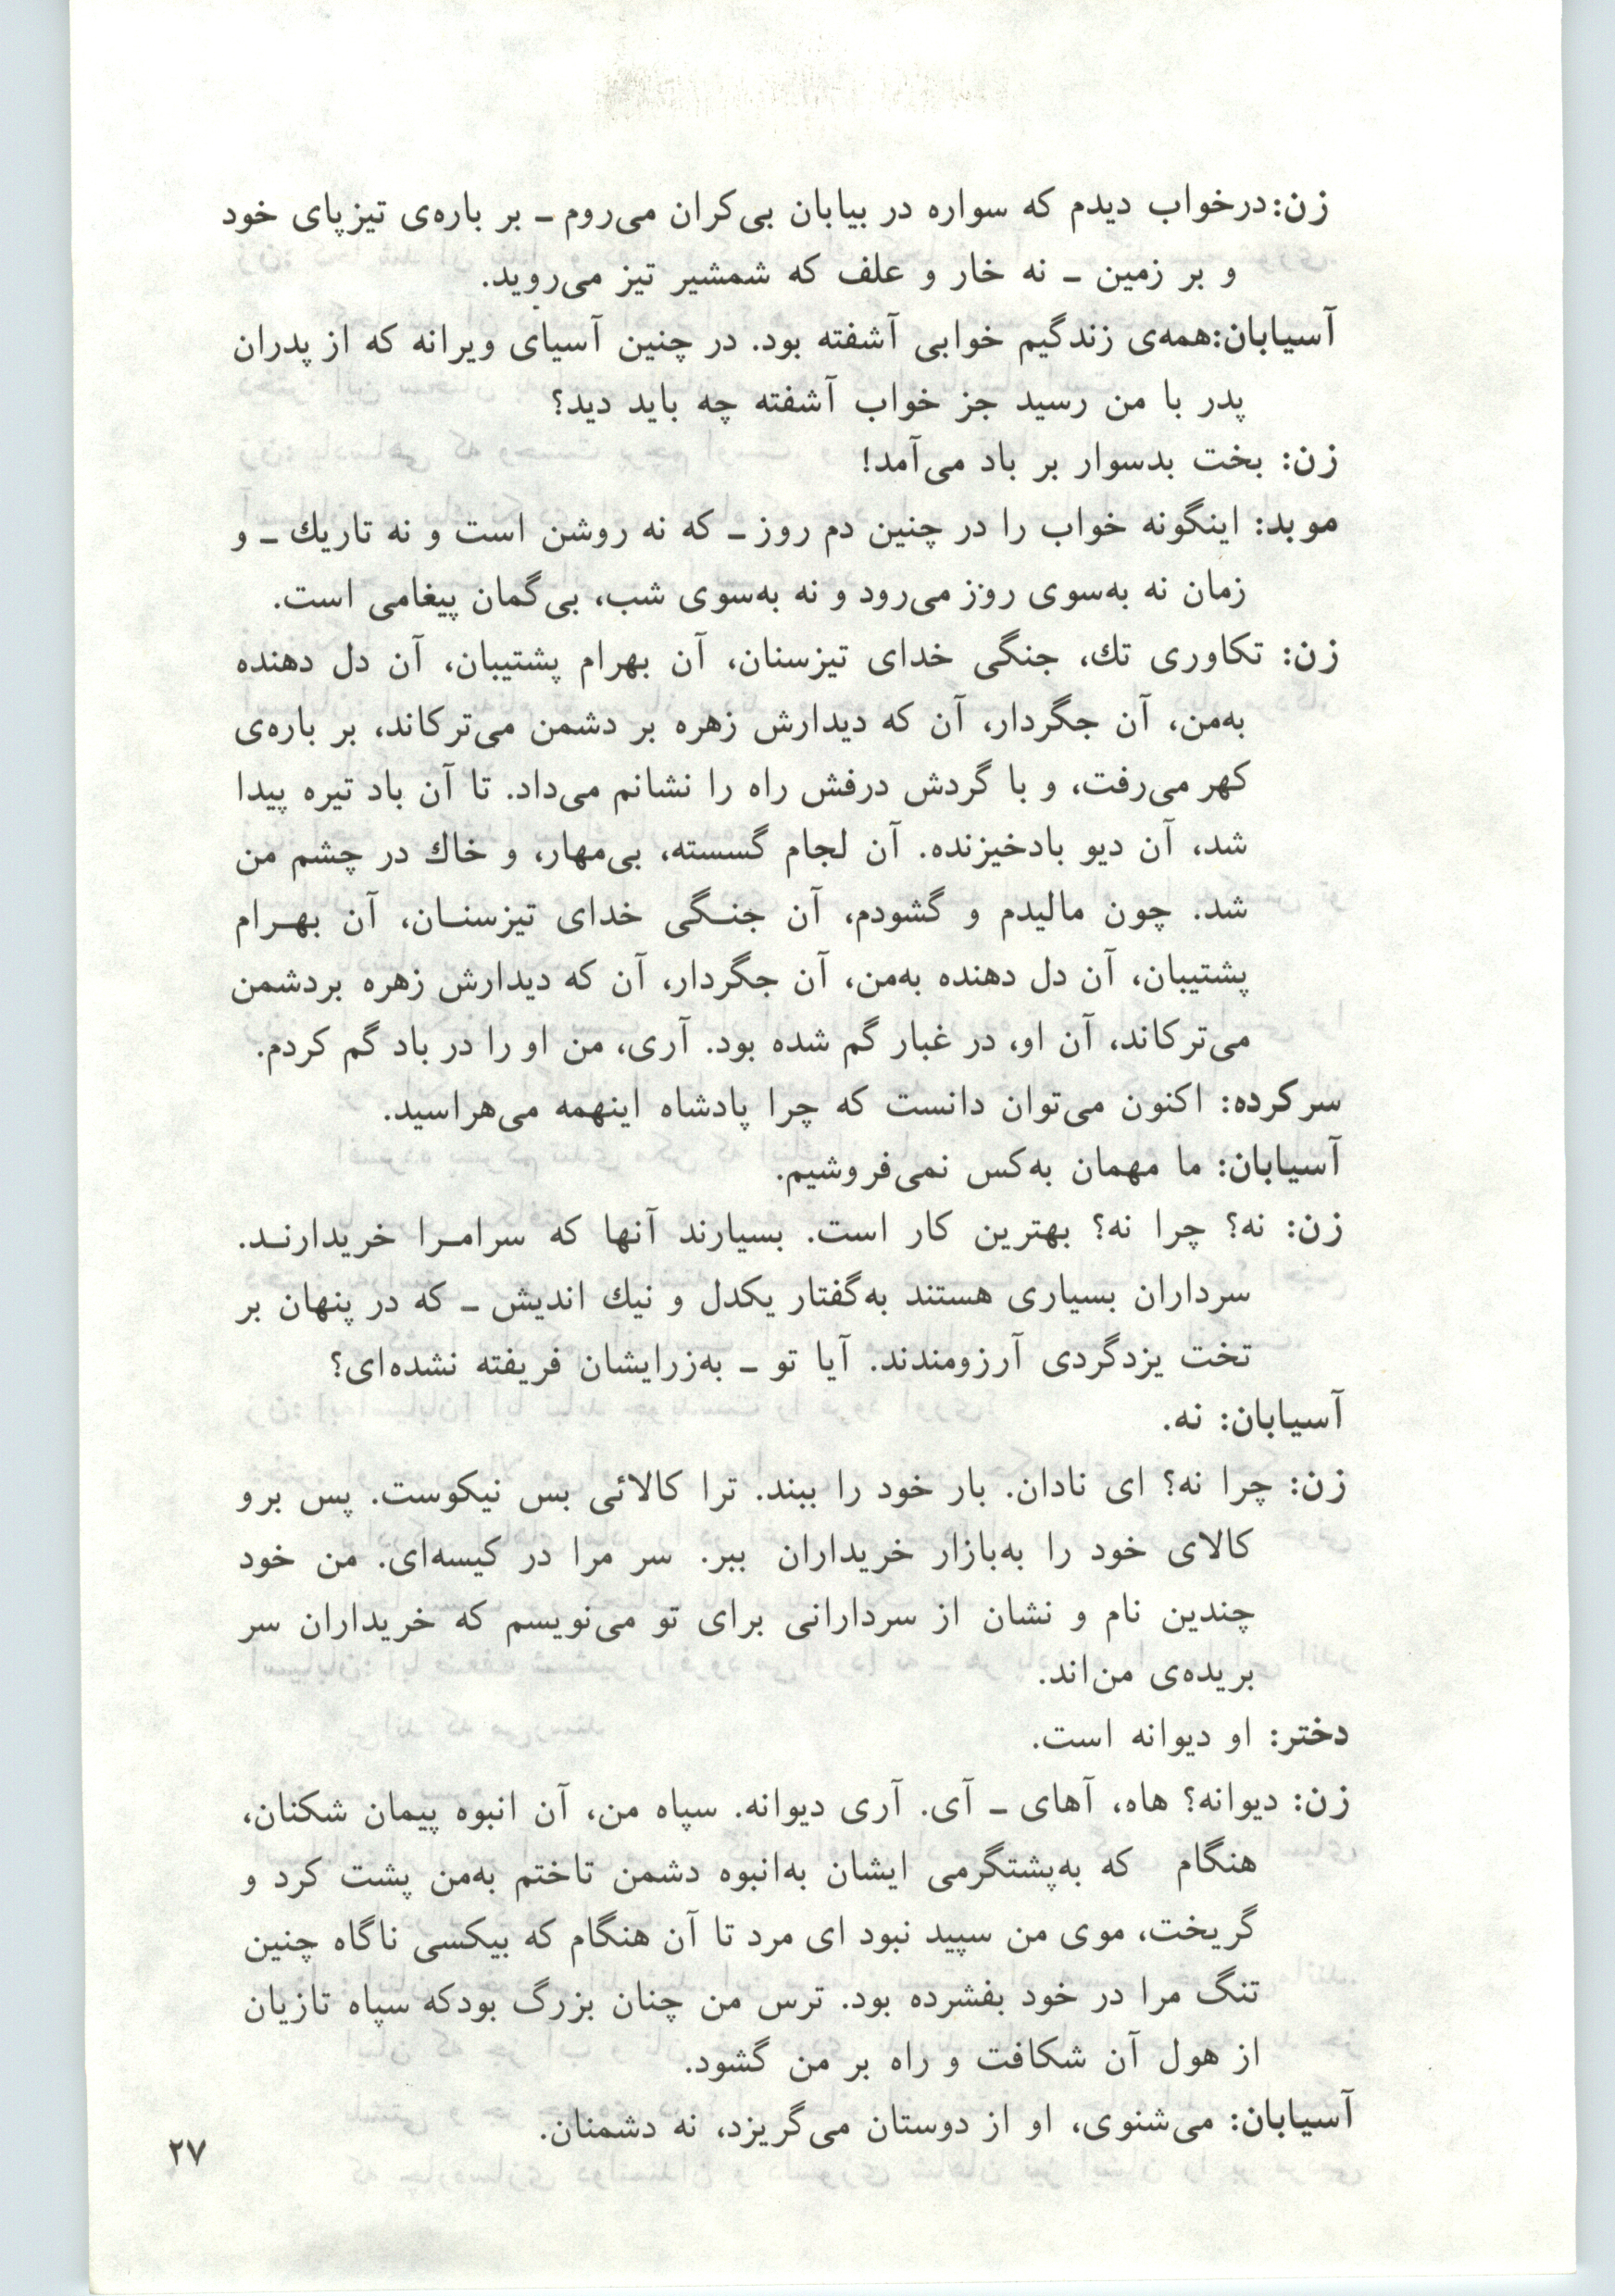 زن: درخواب دیدم که سواره در بیابان بی‌کران می‌روم ـ بر باره‌ی تیزپای خود
و بر زمین ـ نه خار و علف که شمشیر تیز می‌روید.
آسیابان: همه‌ی زندگیم خوابی آشفته بود. در چنین آسیای ویرانه که از پدران
پدر با من رسید جز خواب آشفته چه باید دید؟
زن: بخت بدسوار بر باد می‌آمد!
موبد: اینگونه خواب را در چنین دم روز ـ که نه روشن است و نه تاریك ـ و
زمان نه به‌سوی روز می‌رود و نه به‌سوی شب، بی‌گمان پیغامی است.
زن: تکاوری تك، جنگی خدای تیزسنان، آن بهرام پشتیبان، آن دل دهنده
به‌من، آن جگردار، آن که دیدارش زهره بر دشمن می‌ترکاند، بر باره‌ی
کهر می‌رفت، و با گردش درفش راه را نشانم می‌داد. تا آن باد تیره پیدا
شد، آن دیو بادخیزنده. آن لجام گسسته، بی‌مهار، و خاك در چشم من
شد. چون مالیدم و گشودم، آن جنـگی خدای تیزسنـان، آن بهـرام
پشتیبان، آن دل دهنده به‌من، آن جگردار، آن که دیدارش زهره بردشمن
می‌ترکاند، آن او، در غبار گم شده بود. آری، من او را در باد گم کردم.
سرکرده: اکنون می‌توان دانست که چرا پادشاه اینهمه می‌هراسید.
آسیابان: ما مهمان به‌کس نمی‌فروشیم.
زن: نه؟ چرا نه؟ بهترین کار است. بسیارند آنها که سرامـرا خریدارنـد.
سرداران بسیاری هستند به‌گفتار یکدل و نیك اندیش ـ که در پنهان بر
تخت یزدگردی آرزومندند. آیا تو ـ به‌زرایشان فریفته نشده‌ای؟
آسیابان: نه.
زن: چرا نه؟ ای نادان. بار خود را ببند. ترا کالائی بس نیکوست. پس برو
کالای خود را به‌بازار خریداران ببر. سر مرا در کیسه‌ای. من خود
چندین نام و نشان از سردارانی برای تو می‌نویسم که خریداران سر
بریده‌ی من‌اند.
دختر: او دیوانه است.
زن: دیوانه؟ هاه، آهای ـ آی. آری دیوانه. سپاه من، آن انبوه پیمان شکنان،
هنگام که به‌پشتگرمی ایشان به‌انبوه دشمن تاختم به‌من پشت کرد و
گریخت، موی من سپید نبود ای مرد تا آن هنگام که بیکسی ناگاه چنین
تنگ مرا در خود بفشرده بود. ترس من چنان بزرگ بودکه سپاه تازیان
از هول آن شکافت و راه بر من گشود.
آسیابان: می‌شنوی، او از دوستان می‌گریزد، نه دشمنان.
۲۷